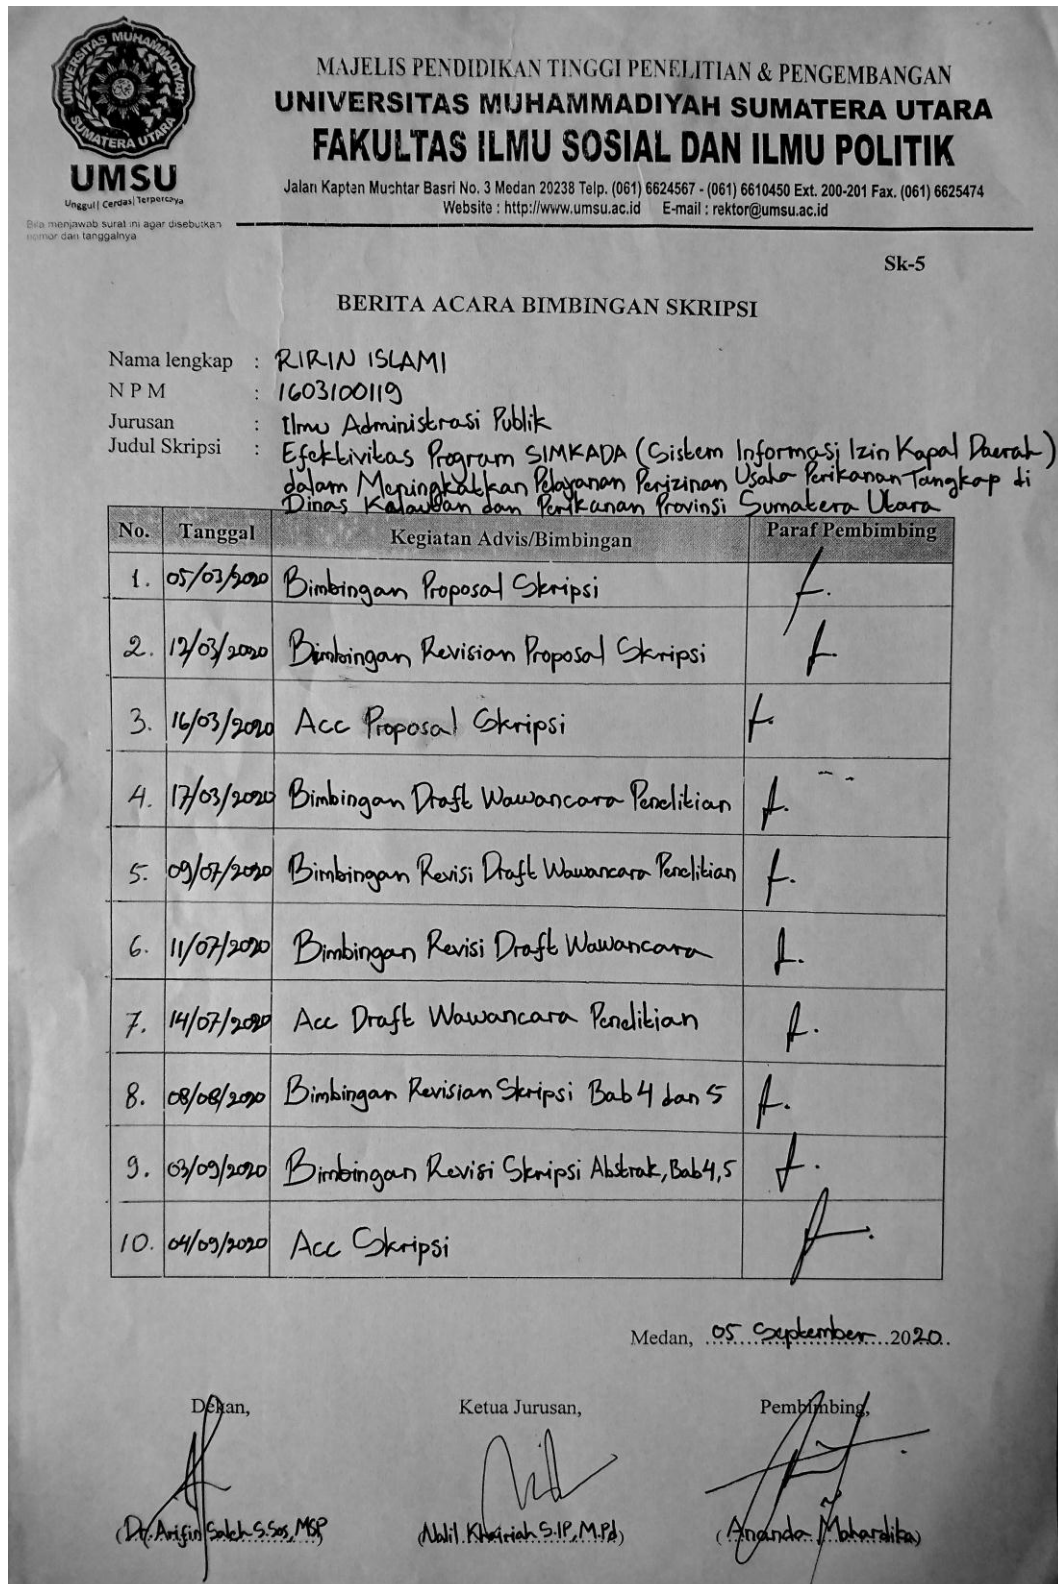 UNIVERSITAS MUHAMMADIYAH
SUMATERA UTARA
UMSU
Unggul | Cerdas | Terpercaya
Bila menjawab surat ini agar disebutkan
nomor dan tanggalnya
MAJELIS PENDIDIKAN TINGGI PENELITIAN & PENGEMBANGAN
UNIVERSITAS MUHAMMADIYAH SUMATERA UTARA
FAKULTAS ILMU SOSIAL DAN ILMU POLITIK
Jalan Kaptan Muchtar Basri No. 3 Medan 20238 Telp. (061) 6624567 - (061) 6610450 Ext. 200-201 Fax. (061) 6625474
Website : http://www.umsu.ac.id E-mail : rektor@umsu.ac.id
Sk-5
BERITA ACARA BIMBINGAN SKRIPSI
Nama lengkap : RIRIN ISLAMI
N P M : 1603100119
Jurusan : Ilmu Administrasi Publik
Judul Skripsi : Efektivitas Program SIMKADA (Sistem Informasi Izin Kapal Daerah)
dalam Meningkatkan Pelayanan Perizinan Usaha Perikanan Tangkap di
Dinas Kalautan dan Perikanan Provinsi Sumatera Utara
No. Tanggal Kegiatan Advis/Bimbingan Paraf Pembimbing
1. 05/03/2020 Bimbingan Proposal Skripsi
2. 12/03/2020 Bimbingan Revisian Proposal Skripsi
3. 16/03/2020 Acc Proposal Skripsi
4. 17/03/2020 Bimbingan Draft Wawancara Penelitian
5. 09/07/2020 Bimbingan Revisi Draft Wawancara Penelitian
6. 11/07/2020 Bimbingan Revisi Draft Wawancara
7. 14/07/2020 Acc Draft Wawancara Penelitian
8. 08/08/2020 Bimbingan Revisian Skripsi Bab 4 dan 5
9. 03/09/2020 Bimbingan Revisi Skripsi Abstrak, Bab 4, 5
10. 04/09/2020 Acc Skripsi
Medan, 05 September 2020
Dekan, Ketua Jurusan, Pembimbing,
(Dr. Arifin Saleh S.Sos, MSP) (Nalil Khairiah S.IP, M.Pd) (Ananda Mahardika)